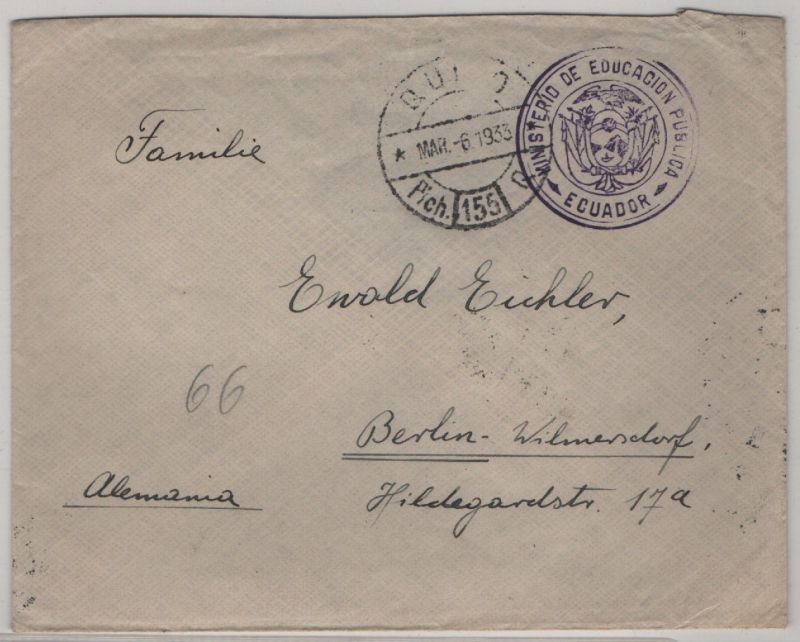 QUITO
MAR.-6.1933
Pich. 155
MINISTERIO DE EDUCACION PUBLICA
ECUADOR
Familie
Ewald Eichler,
66
Berlin-Wilmersdorf,
Alemania
Hildegardstr. 17a